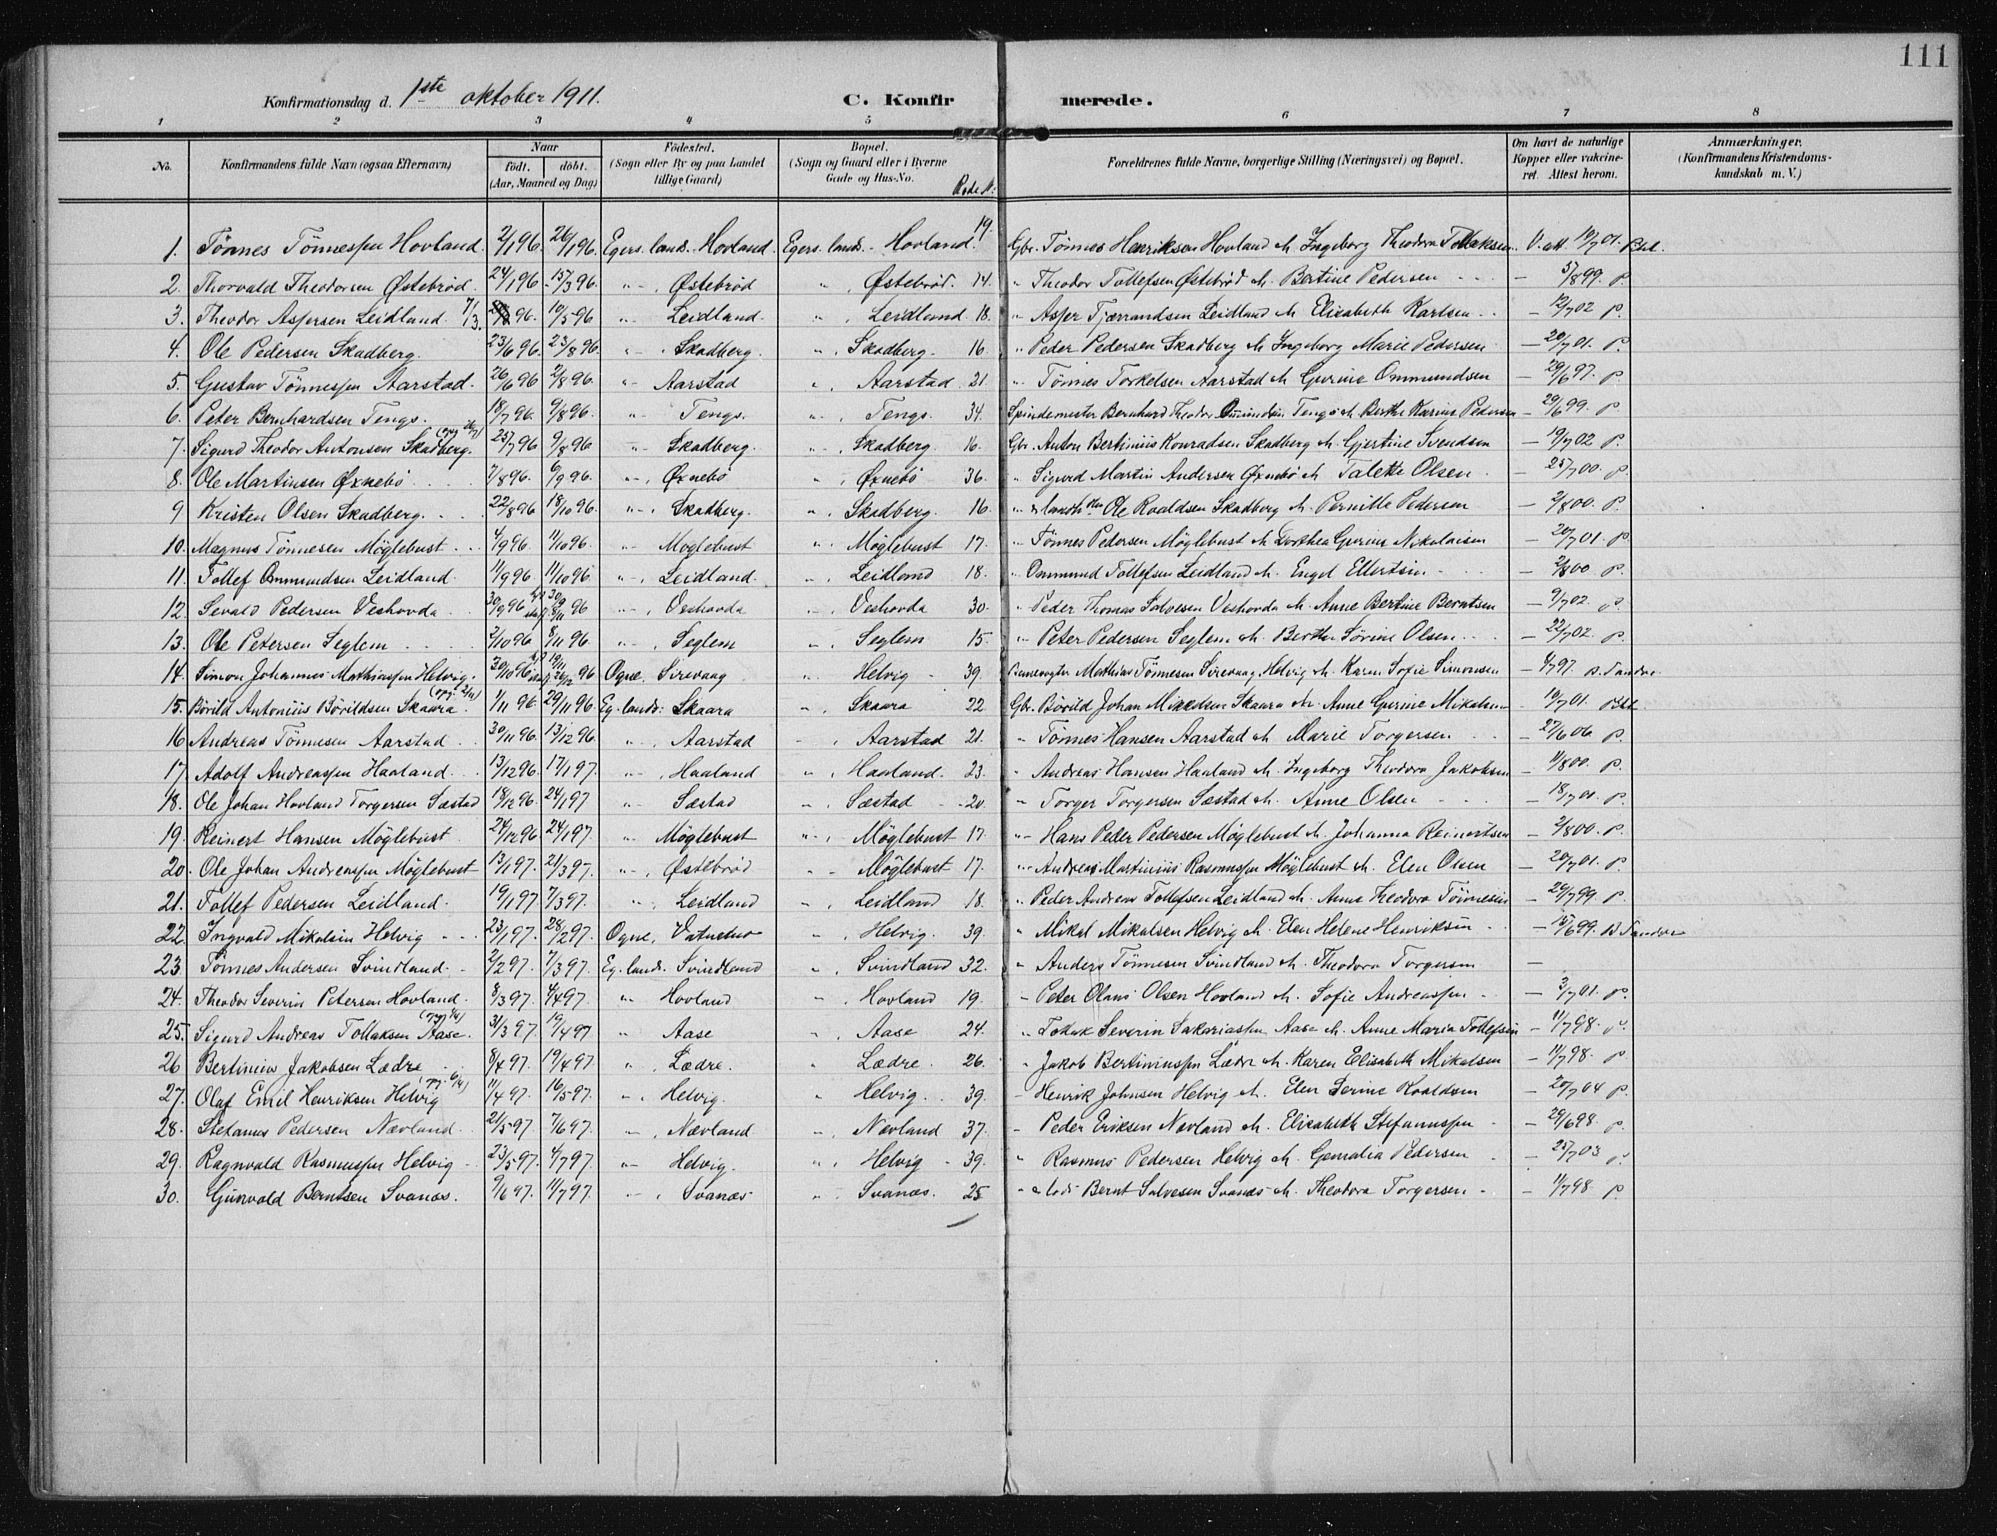 111
Konfirmationsdag d. 1ste oktober 1911. C. Konfirmerede.
1 2 3 4 5 6 7 8
No. Konfirmandens fulde Navn (ogsaa Efternavn) Naar født. døbt. (Aar, Maaned og Dag) Fødested. (Sogn eller By og paa Landet tillige Gaard.) Bopæl. (Sogn og Gaard eller i Byerne Gade og Hus-No. Rode N. Forældrenes fulde Navne, borgerlige Stilling (Næringsvei) og Bopæl. Om havt de naturlige Kopper eller vakcineret. Attest herom. Anmærkninger. (Konfirmandens Kristendomskundskab m. V.)
1. Tønnes Tønnessen Hovland. 2/1 96. 26/1 96. Egers. lands. Hovland. Egers. lands. Hovland. 19. Gbr. Tønnes Henriksen Hovland & Ingeborg Theodora Tollaksen. V. att. 10/7 01.
2. Thorvald Theodorsen Østebrød. 24/1 96 15/3 96. " Østebrød " Østebrød. 14. " Theodor Tollefsen Østebrød & Bertine Pedersen — 5/8 99. P.
3. Theodor Aspersen Leidland. 7/3. 96. 10/5 96 " Leidland. " Leidland 18. " Asper Tjærrandsen Leidland & Elisabeth Karlsen — 12/7 02 P.
4. Ole Pedersen Skadberg. 23/6 96. 23/8 96. " Skadberg. " Skadberg. 16. " Peder Pedersen Skadberg & Ingeborg Marie Pedersen — 20/7 01. P.
5. Gustav Tønnessen Aarstad. 26/6 96 2/8 96. " Aarstad " Aarstad. 21. " Tønnes Torkelsen Aarstad & Gurine Ommundsen — 29/6 97. P.
6. Peter Bernhardsen Tengs. 18/7 96. 9/8 96. " Tengs. " Tengs. 34. Spindemester Bernhard Theodor Tengs & Berthe Karine Pedersen — 29/6 99. P
7. Sigurd Theodor Antonsen Skadberg. 25/7 96 9/8 96 " Skadberg " Skadberg 16. Gbr. Anton Bertinius Konradsen Skadberg & Gjertine Svendsen — 19/7 02 P.
8. Ole Martinsen Øxnebø 7/8 96. 6/9 96. " Øxnebø " Øxnebø 36. " Sigurd Martin Andersen Øxnebø & Talette Olsen — 25/7 00. P
9 Kristen Olsen Skadberg. 22/8 96 18/10 96. " Skadberg. " Skadberg. 16. " Ole Roaldsen Skadberg & Pernille Pedersen — 2/8 00. P.
10. Magnus Tønnesen Møglebust 4/9 96. 11/10 96. " Møglebust " Møglebust 17. " Tønnes Pedersen Møglebust & Dorthea Gurine Nikolaisen — 20/7 01. P
11. Tollef Ommundsen Leidland. 11/9 96. 11/10 96 " Leidland. " Leidland 18. " Ommund Tollefsen Leidland & Engel Ellertsen — 2/8 00. P
12. Sevald Pedersen Veshovda 30/9 96 96 " Veshovda " Veshovda 30. " Peder Thomas Salvesen Veshovda & Anne Bertine Berntsen — 9/7 02. P.
13. Ole Petersen Seglem 2/10 96 8/11 96. " Seglem " Seglem 15. " Peter Pedersen Seglem & Berthe Sørine Olsen — 22/7 02. P.
14. Simon Johannes Mathiassen Helvig. 30/10 96 96 Ogne, Sirevaag " Helvig 39. Mathias Tønnesen Sirevaag, Helvig & Karen Sofie Simonsen — 6/7 97
15. Børild Antonius Børildsen Skaara. 1/11 96. 29/11 96 Eg. lands: Skaara " Skaara 22 Gbr. Børild Johan Mikkelsen Skaara & Anne Gurine Mikalsen — 10/7 01.
16 Andreas Tønnesen Aarstad 30/11 96. 13/12 96 " Aarstad " Aarstad 21. " Tønnes Hansen Aarstad & Marie Torgersen — 27/6 06 P.
17. Adolf Andreassen Haaland. 13/12 96. 17/1 97. " Haaland " Haaland. 23. " Andreas Hansen Haaland & Ingeborg Theodora Jakobsen — 11/8 00. P.
18. Ole Johan Hovland Torgersen Sæstad 18/12 96. 24/1 97 " Sæstad " Sæstad 20. " Torger Torgersen Sæstad & Anne Olsen — 18/7 01. P.
19. Reinert Hansen Møglebust 24/12 96. 24/1 97. " Møglebust " Møglebust 17. " Hans Peder Pedersen Møglebust & Johanna Reinertsen — 2/8 00. P.
20. Ole Johan Andreassen Møglebust 13/1 97. 21/3 97. " Østebrød " Møglebust 17. " Andreas Martinius Rasmussen Møglebust & Elen Olsen — 20/7 01. P.
21. Tollef Pedersen Leidland. 19/1 97 7/3 97. " Leidland " Leidland 18. " Peder Andreas Tollefsen Leidland & Anne Theodora Tønnesen — 26/7 99. P.
22. Ingvald Mikalsen Helvig 23/1 97. 28/2 97. Ogne, " Helvig. 39. " Mikal Mikalsen Helvig & Elen Helene Henriksen — 15/6 99.
23 Tønnes Andersen Svindland. 2/2 97. 7/3 97. Eg. lands. Svindland " Svindland 32. " Anders Tønnesen Svindland & Theodora Torgersen —
24. Theodor Severin Petersen Hovland. 8/3 97. 4/4 97. " Hovland " Hovland 19. " Peter Olaus Olsen Hovland & Sofie Andreassen — 3/7 01. P.
25. Sigurd Andreas Tollaksen Aase. 31/3 97. 19/4 97. " Aase " Aase 24. " Tollak Severin Sakariassen Aase & Anne Maria Tollefsen — 11/7 98. P.
26 Bertinius Jakobsen Lædre 8/4 97. 19/4 97. " Lædre. " Lædre. 26. " Jakob Bertinussen Lædre & Karen Elisabeth Mikalsen — 11/7 98. P
27. Olaf Emil Henriksen Helvig 11/4 97. 16/5 97. " Helvig. " Helvig. 39. " Henrik Johnsen Helvig & Elen Serine Roaldsen — 20/7 04 P.
28. Stefanus Pedersen Nævland. 21/5 97. 7/6 97. " Nævland " Nævland 37. " Peder Eriksen Nævland & Elisabeth Stefanussen — 29/6 98. P.
29. Ragnvald Rasmussen Helvig 23/5 97. 4/7 97. " Helvig. " Helvig 39. " Rasmus Pedersen Helvig & Gemalia Pedersen — 25/7 03 P.
30. Gunvald Berntsen Svanæs. 9/6 97. 11/7 97. " Svanæs " Svanæs. 25 " Bernt Salvesen Svanæs & Theodora Torgersen — 11/7 98. P.